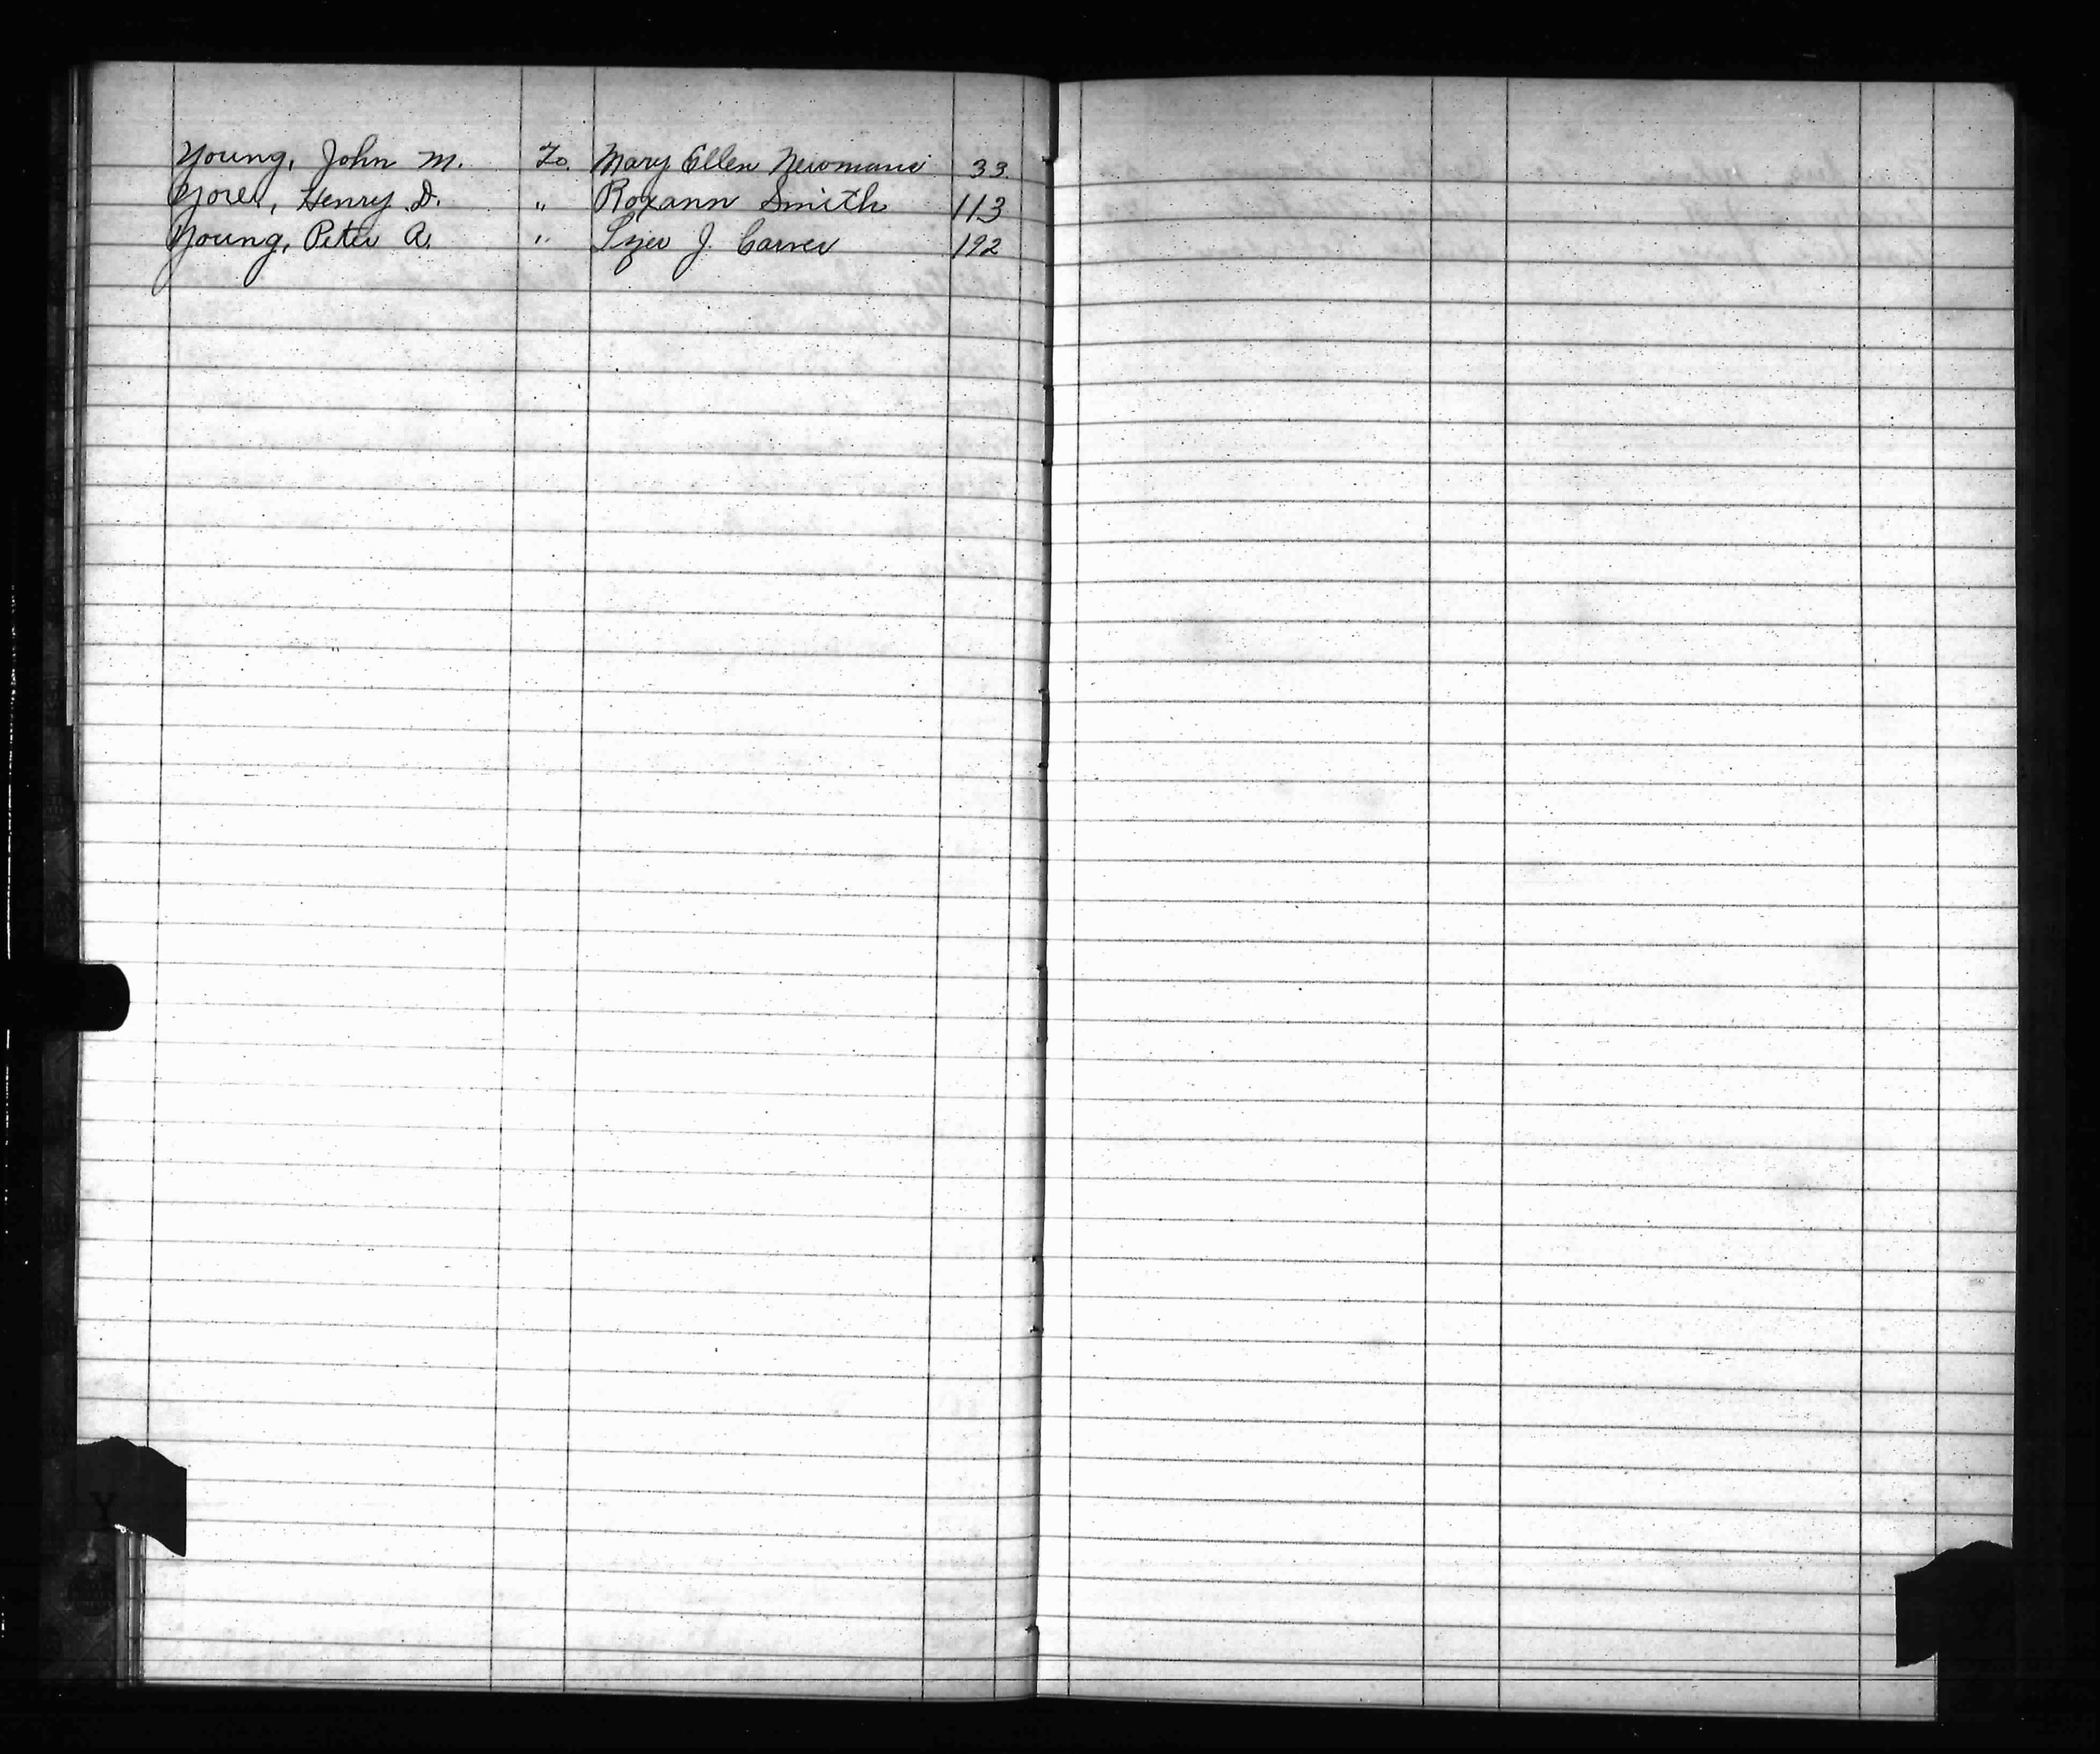 Young, John M. To. Mary Ellen Newmans 33.
Yorei, Henry D. " Roxann Smith 113
Young, Peter A. " Lyzer J Carver 192
Y